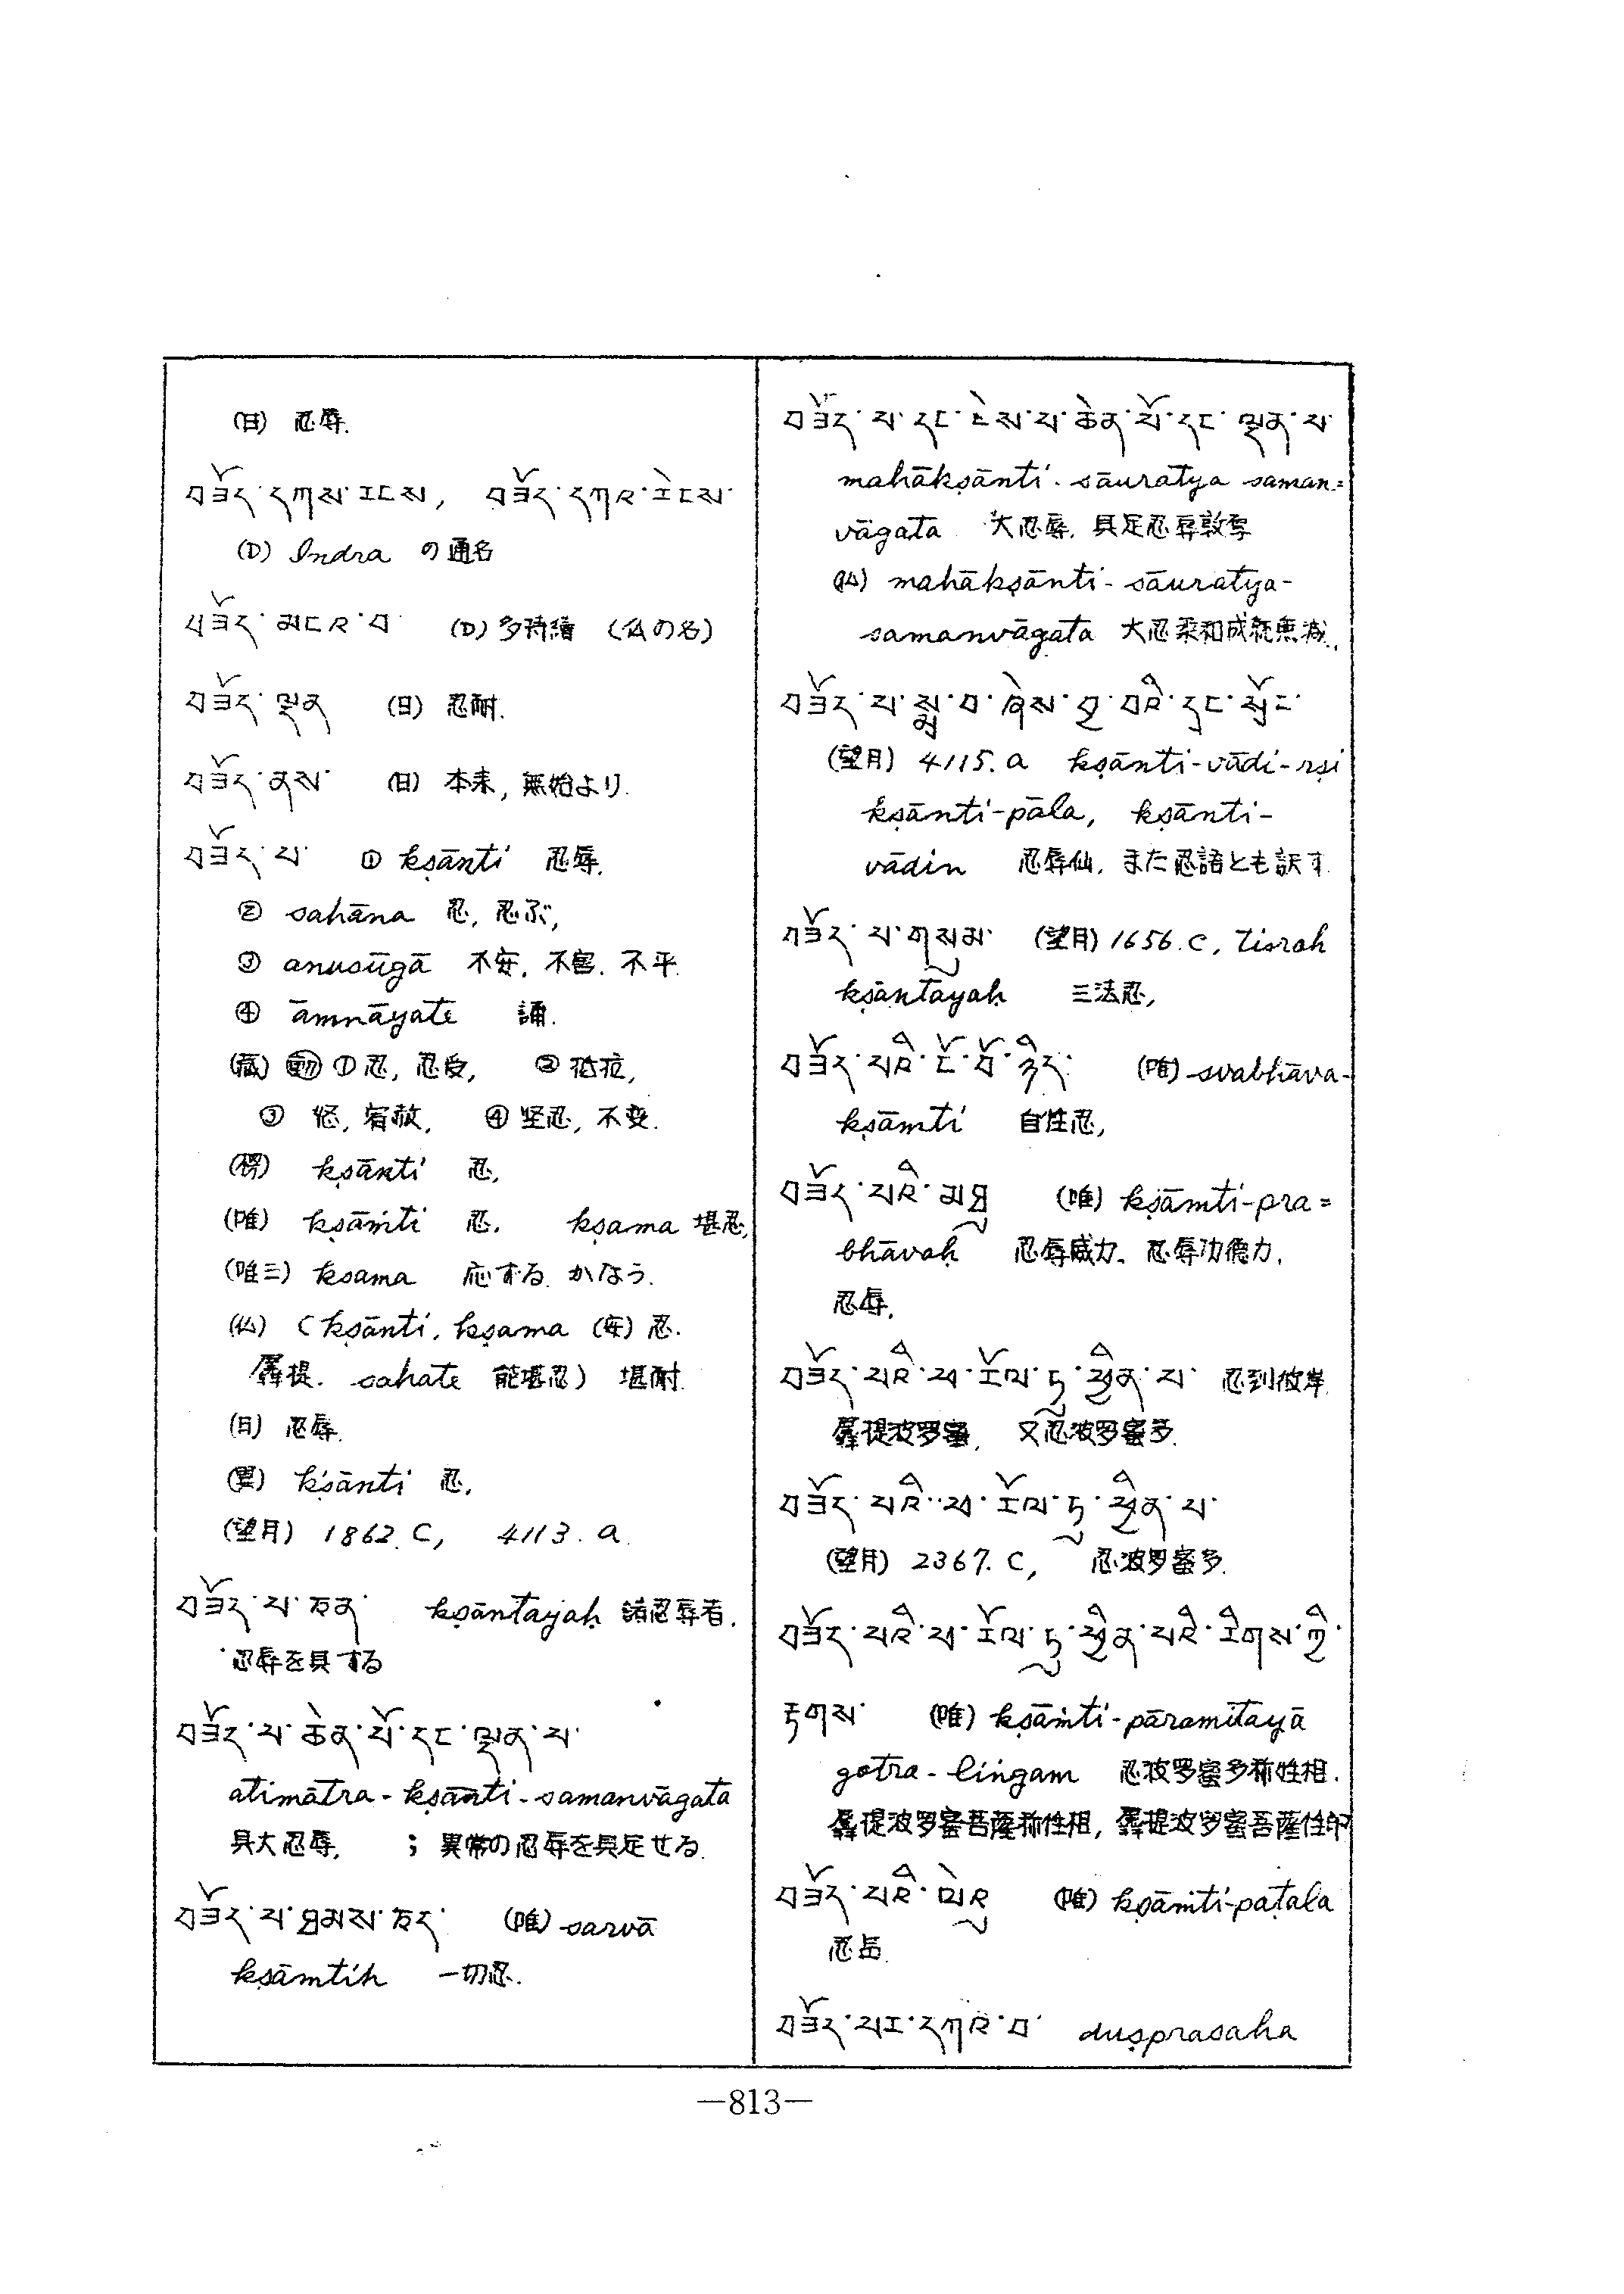 (日) 忍辱.
བཟོད་དཀས་རངས, བཟོད་དཀར་རེངས་
(D) Indra の通名
བཟོད་མངར་བ་ (D) 多持績 (仏の名)
བཟོད་ལྡན (日) 忍耐.
བཟོད་ནས་ (日) 本来, 無始より.
བཟོད་པ་ ① kṣānti 忍辱.
② sahāna 忍, 忍ぶ,
③ anusūgā 不安, 不害. 不平.
④ āmnāyate 誦.
(蔵) ㊀動 ① 忍, 忍受, ② 抵抗,
③ 恕, 宥赦, ④ 坚忍, 不变.
(楞) kṣānti 忍,
(唯) kṣāṁti 忍. kṣama 堪忍,
(唯三) ksama 応ずる. かなう.
(仏) (kṣānti, kṣama (安) 忍.
羼提. sahate 能堪忍) 堪耐.
(月) 忍辱.
(異) kṣānti 忍,
(望月) 1862. C, 4113. a.
བཟོད་པ་ཅན་ kṣāntayaḥ 諸忍辱者.
忍辱を具する
བཟོད་པ་ཆེན་པོ་དང་ལྡན་པ་
atimātra-kṣānti-samanvāgata
具大忍辱. ; 異常の忍辱を具足せる.
བཟོད་པ་ཐམས་ཅད་ (唯) sarvā
kṣāmtih 一切忍.
བཟོད་པ་དང་ངེས་པ་ཆེན་པོ་དང་ལྡན་པ་
mahākṣānti-sāuratya saman=
vāgata 大忍辱. 具足忍辱敦厚
(仏) mahākṣānti-sāuratya-
samanvāgata 大忍柔和成就無減.
བཟོད་པ་སྨྲ་བ་ཞེས་བྱ་བའི་དྲང་སྲོང་
(望月) 4115. a kṣānti-vādi-rṣi
kṣānti-pāla, kṣānti-
vādin 忍辱仙. また忍語とも訳す.
བཟོད་པ་གསུམ་ (望月) 1656. C, Tisrah
kṣāntayaḥ 三法忍,
བཟོད་པའི་ངོ་བོ་ཉིད་ (唯) svabhāva-
kṣāmti 自性忍,
བཟོད་པའི་མཐུ (唯) kṣāmti-pra=
bhāvaḥ 忍辱威力. 忍辱功德力.
忍辱.
བཟོད་པའི་ཕ་རོལ་ཏུ་ཕྱིན་པ་ 忍到彼岸.
羼提波罗蜜, 又忍波罗蜜多.
བཟོད་པའི་ཕ་རོལ་ཏུ་ཕྱིན་པ་
(望月) 2367. C, 忍波罗蜜多.
བཟོད་པའི་ཕ་རོལ་ཏུ་ཕྱིན་པའི་རིགས་ཀྱི་
རྟགས་ (唯) kṣāṁti-pāramitayā
gotra-lingam 忍波罗蜜多称性相.
羼提波罗蜜菩薩称性相, 羼提波罗蜜菩薩性印
བཟོད་པའི་ལེུར (唯) kṣāṁti-paṭala
忍品.
བཟོད་པར་དཀའ་བ་ duṣprasaha
—813—